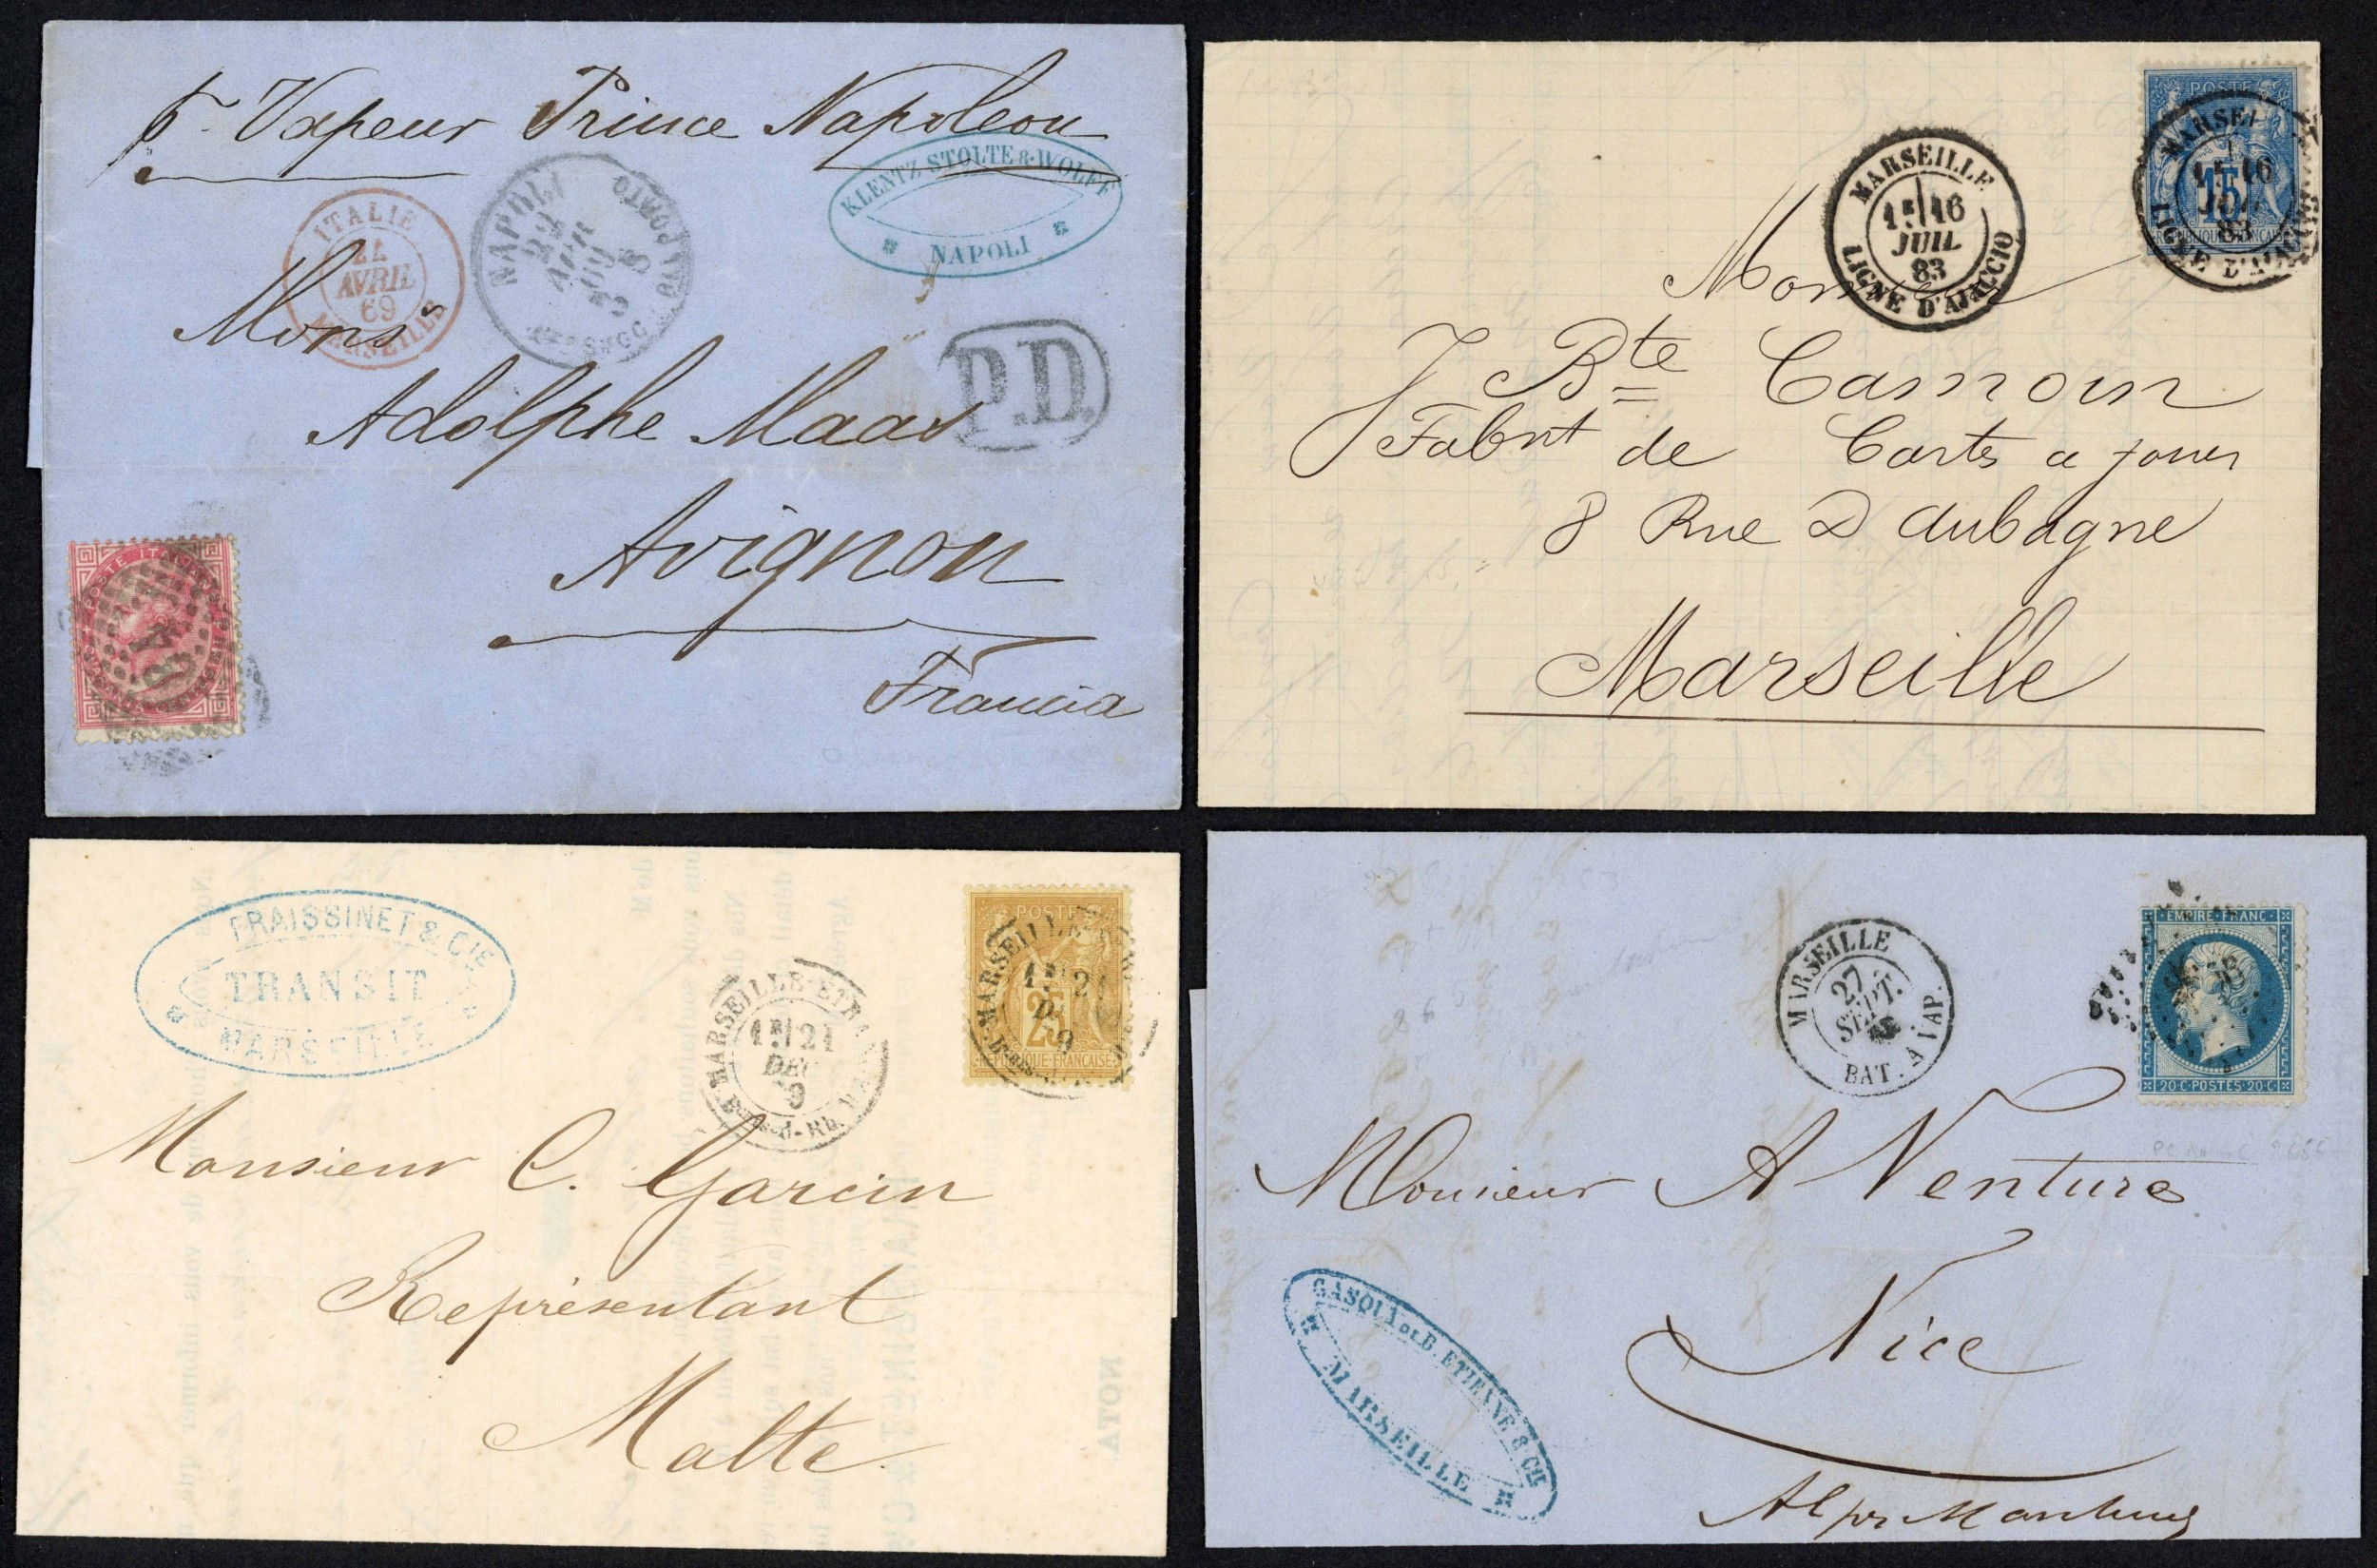 pr Vapeur Prince Napoleon
KLENTZ STOLTE & WOLFF
NAPOLI
ITALIE
21
AVRIL
69
MARSEILLE
NAPOLI
APR
69
3 S
Monsr
Adolphe Maas
P.D.
Avignon
Francia
POSTE ITALIANE
POSTE
15
REPUBLIQUE FRANCAISE
MARSEI
16
83
LIGNE D'AJACCIO
MARSEILLE
1E 16
JUIL
83
LIGNE D'AJACCIO
Monsieur
J Bte Camoin
Fabnt de Cartes a jouer
8 Rue D'Aubagne
Marseille
FRAISSINET & CIE
TRANSIT
MARSEILLE
MARSEILLE-ETR
1E 21
DEC
79
Bches-d-Rh.
POSTE
25
REPUBLIQUE FRANCAISE
MARSEILLE
1E 21
Monsieur C. Garcin
Représentant
Malte
NOTA
MARSEILLE
27
SEPT.
BAT. A VAP.
EMPIRE FRANC
20 C POSTES 20 C
Monsieur A Venture
Nice
Alpes Maritimes
GASQUI DE B. ETIENNE & CIE
MARSEILLE